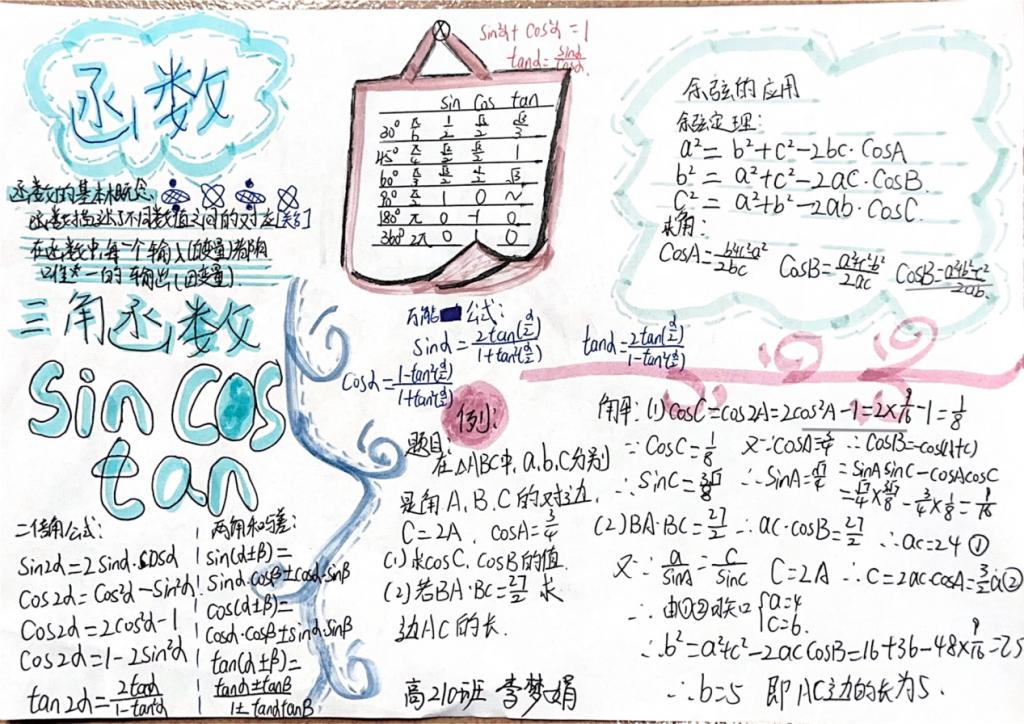 函数
函数的基本概念:
函数描述了不同数值之间的对应关系
在函数中,每一个输入(自变量)都有
唯一的输出(因变量).
三角函数
sin cos
tan
二倍角公式:
sin2α=2Sinα·cosα
Cos2α=Cos²α-Sin²α
Cos2α=2cos²α-1
Cos2α=1-2Sin²α
tan2α=2tanα/1-tan²α
两角和与差:
sin(α±β)=
Sinα·cosβ±cosα·sinβ
cos(α±β)=
cosα·cosβ±sinα·sinβ
tan(α±β)=
tanα±tanβ/1±tanαtanβ
sin²α+cos²α=1
tanα=sinα/cosα.
sin cos tan
30° π/6 1/2 √3/2 √3/3
45° π/4 √2/2 √2/2 1
60° π/3 √3/2 √3
90° π/2 1 0 ~
180° π 0 -1 0
360° 2π 0 1 0
万能公式:
sinα=2tan(α/2)/1+tan²(α/2)
tanα=2tan(α/2)/1-tan²(α/2)
cosα=1-tan²(α/2)/1+tan²(α/2)
余弦的应用
余弦定理:
a²=b²+c²-2bc·CosA
b²=a²+c²-2ac·CosB.
C²=a²+b²-2ab·CosC.
求角:
CosA=b²+c²-a²/2bc
CosB=a²+c²-b²/2ac
CosB=a²+b²-c²/2ab.
例:
题目:
在△ABC中,a,b,C分别
是角A、B、C的对边,
C=2A, cosA=3/4
(1)求cosC,CosB的值.
(2)若BA·BC=27/2 求
边AC的长.
高210班 李梦娟
解:(1)CosC=cos2A=2cos²A-1=2×9/16-1=1/8
∵CosC=1/8 又∵cosA=3/4 ∴CosB=-cos(A+C)
∴SinC=3√7/8 ∴SinA=√7/4 =SinAsinC-cosAcosC
=√7/4×3√7/8-3/4×1/8=9/16
(2)BA·BC=27/2 ∴ac·cosB=27/2 ∴ac=24①
又∵a/SinA=C/SinC C=2A ∴C=2ac·cosA=3/2a②
∴由①②可知{a=4 c=6.
∴b²=a²+c²-2acCosB=16+36-48×9/16=25
∴b=5 即AC边的长为5.